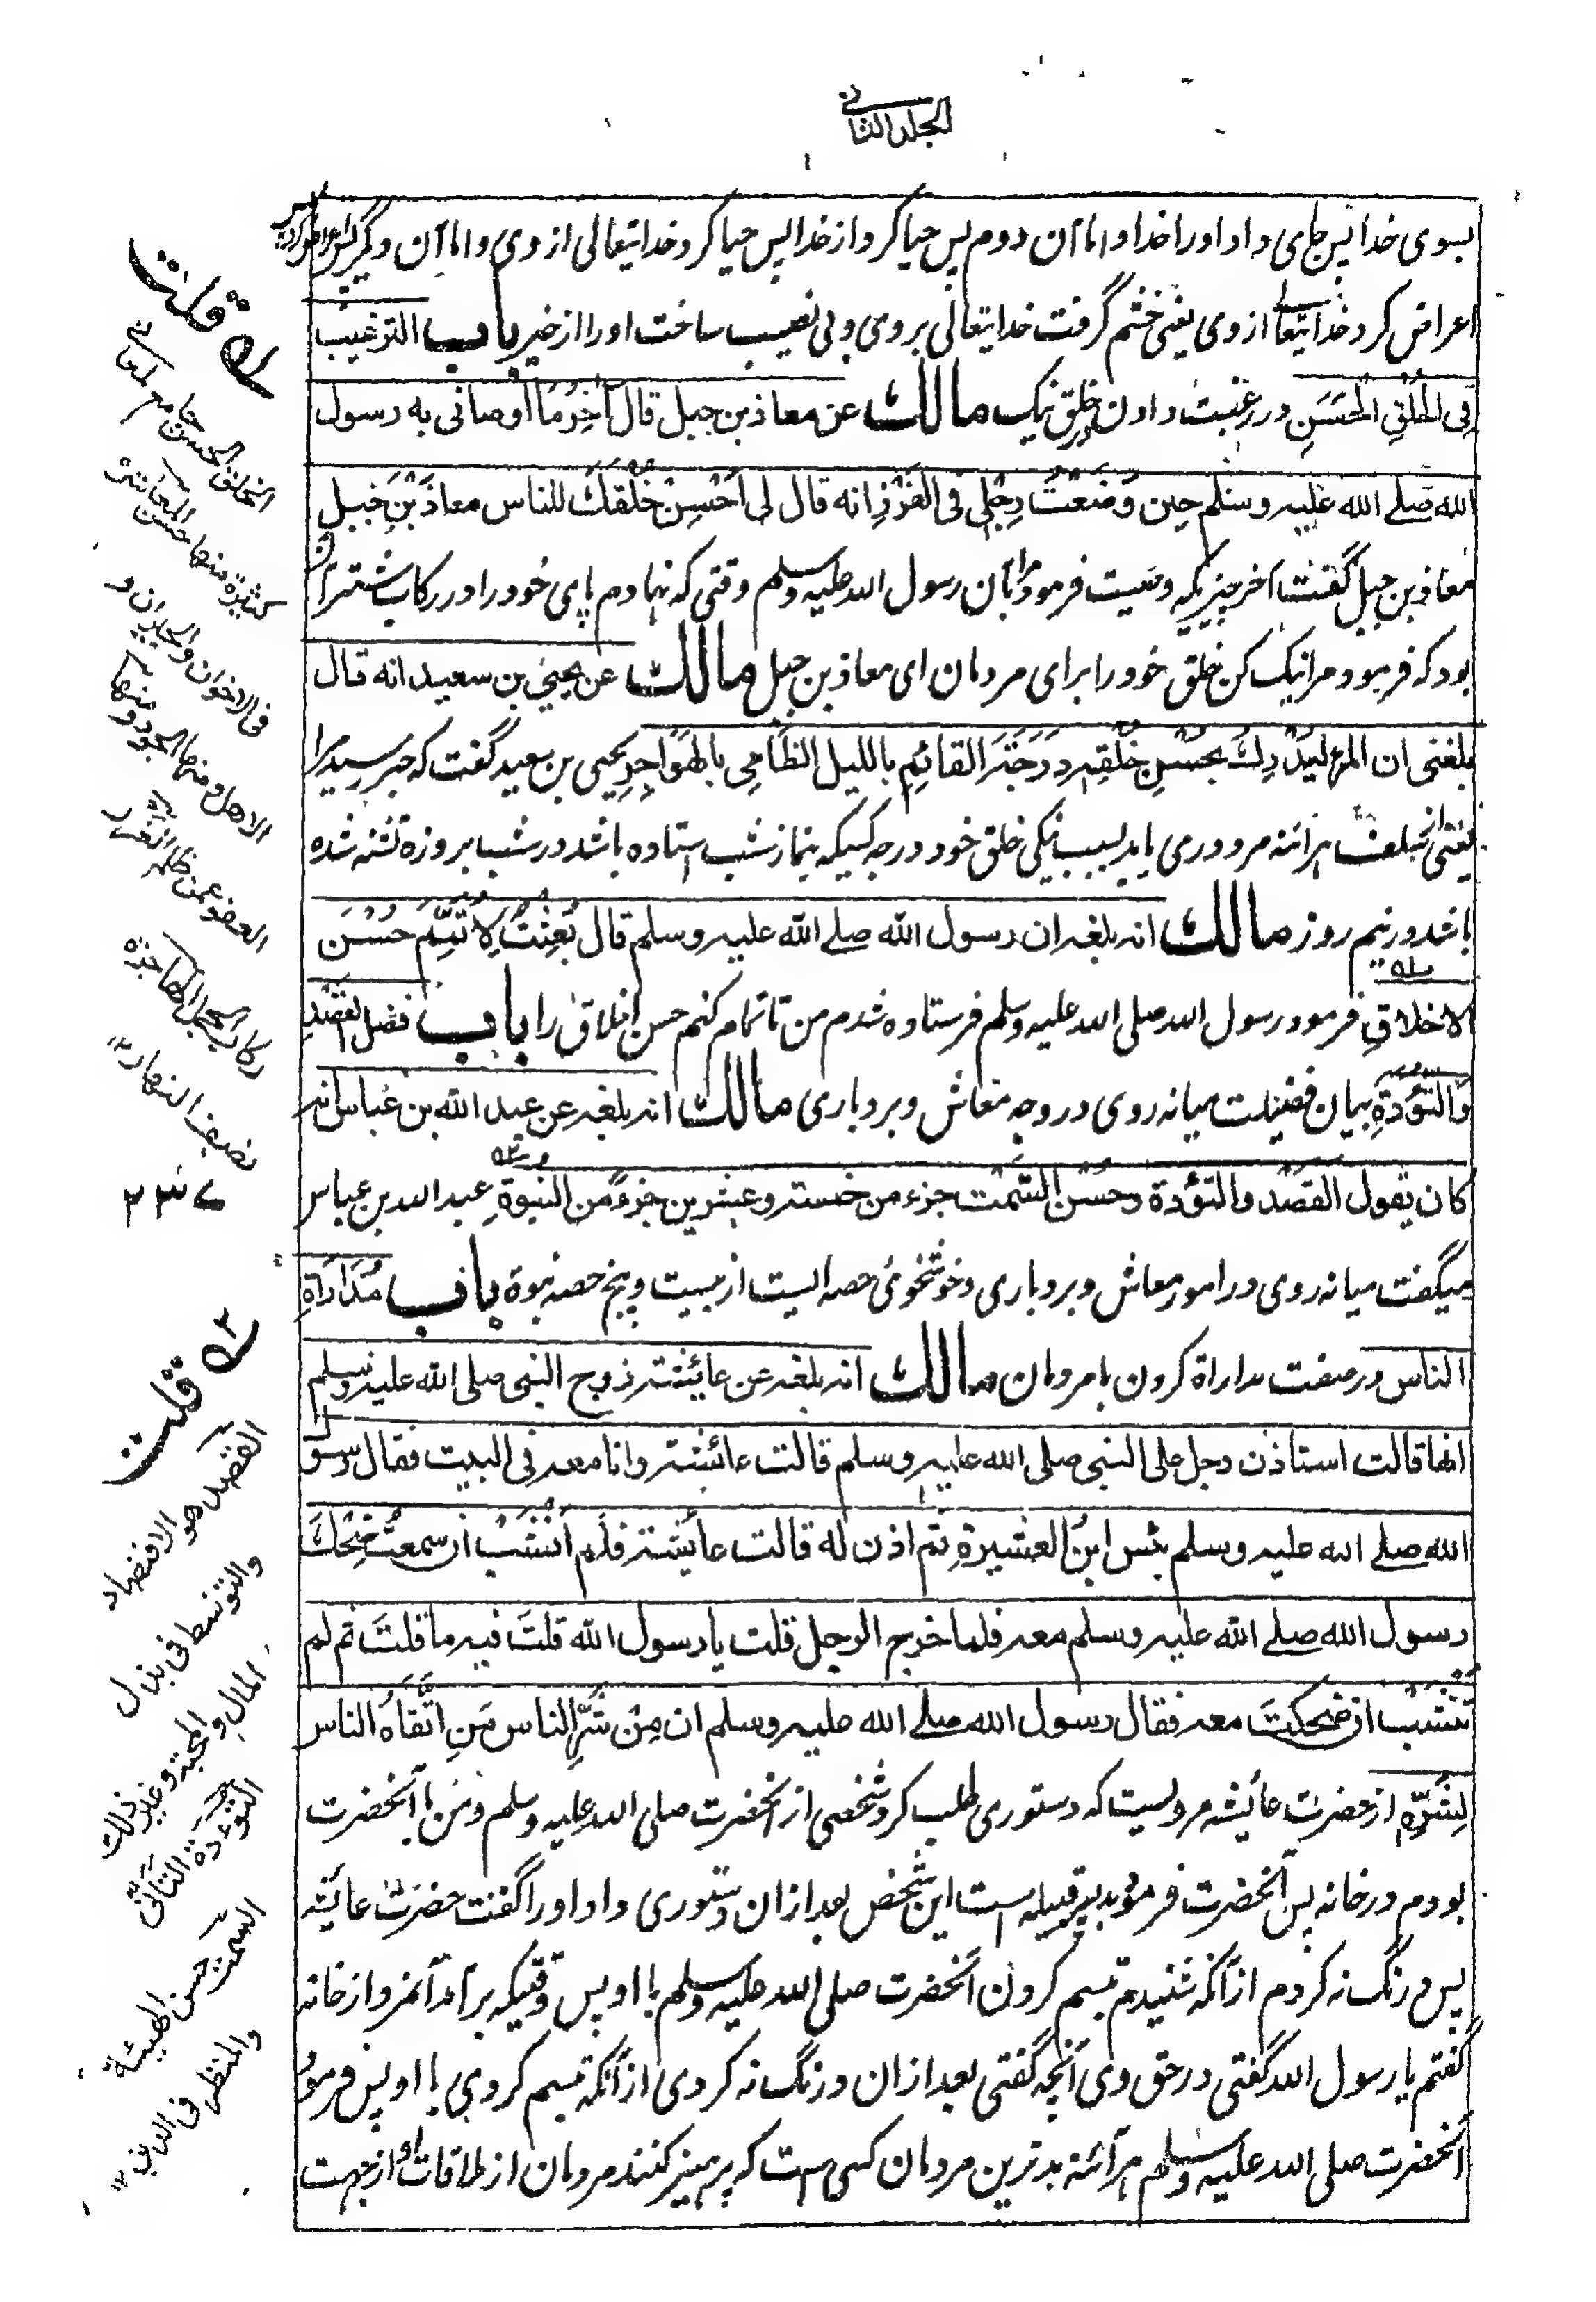 الجلد الثانی
بسوی خدا پس جای داد او را خدا و اما آن دوم پس حیا کرد از خدا پس حیا کرد خدایتعالی از وی و اما آن دیگر پس اعراض کرد پس
اعراض کرد خدایتعالی از وی یعنی خشم گرفت خدایتعالی بر وی و بی نصیب ساخت او را از خیر باب الترغیب
فِی الخُلُقِ الحَسَنِ در رغبت دادن خلق نیک مالك عن معاذ بن جبل قال آخِرُ مَا اوصانی به رسول
الله صلے الله علیه وسلم حین وَضَعْتُ رِجْلِی فی الغَرْزِ انه قال لی اَحْسِنْ خُلُقَكَ للناس معاذَ بْنَ جَبَلٍ
معاذ بن جبل گفت آخر چیزیکه وصیت فرمود مرا بآن رسول الله صلی الله علیه وسلم وقتی که نهادم پای خود را در رکاب شتر آن
بود که فرمود مرا نیک کن خلق خود را برای مردمان ای معاذ بن جبل مالك عن یحیٰی بن سعید انه قال
بلغنی ان المرء لَیُدْرِكُ بِحُسْنِ خُلُقِه دَرَجَةَ القائِمِ باللیل الظَامِی بالهَوَاجِرِ یحیی بن سعید گفت که خبر رسید مرا
یعنی از تبلغت هر آئنه مرد در می یابد بسبب نیکی خلق خود درجه کسیکه بنماز شب استاده باشد در شب بروزه تشنه شده
باشد در نیم روز مالك انه بلغه ان رسول الله صلے الله علیه وسلم قال بُعِثْتُ لِاُتَمِّمَ حُسْنَ
الاخلاقِ فرمود رسول الله صلی الله علیه وسلم فرستاده شدم من تا تمام کنم حسن اخلاق را باب فضل القَصْدِ
وَالتُؤَدَةِ بیان فضیلت میانه روی در وجه معاش و بردباری مالك انه بلغه عن عبد الله بن عباس انه
کان یقول القَصْد والتؤدة وحُسْنُ السَّمْت جزء من خمسة وعشرین جزءً من النبوةِ عبد الله بن عباس
میگفت میانه روی در امور معاش و بردباری و خوشخوئی حصه ایست از بیست و پنج حصه نبوة باب مُدَارَاةِ
الناس در صفت مداراة کردن با مردمان مالك انه بلغه عن عائشة زوج النبی صلی الله علیه وسلم
انها قالت استاذن رجل علی النبی صلی الله علیه وسلم قالت عائشة وانا معه فی البیت فقال رسول
الله صلے الله علیه وسلم بئس ابنُ العشیرةِ ثم اذن له قالت عائشة فلم اَنْشَبْ ان سمعتُ ضِحْكَ
رسول الله صلے الله علیه وسلم معه فلما خرج الرجل قلت یا رسول الله قلتَ فیه ما قلتَ ثم لم
تَنْشَبْ ان ضحکتَ معه فقال رسول الله صلے الله علیه وسلم ان مِنْ شَرِّ الناس مَنِ اتَّقَاهُ الناس
لِشَرِّهِ از حضرت عائشه مرویست که دستوری طلب کرد شخصی از آنحضرت صلی الله علیه وسلم و من با آنحضرت
بودم در خانه پس آنحضرت فرمود بد پسر قبیله است این شخص بعد ازان دستوری داد او را گفت حضرت عائشه
پس درنگ نه کردم از آنکه شنیدم تبسم کردن آنحضرت صلی الله علیه وسلم با او پس وقتیکه بر آمد آنمرد از خانه
گفتم یا رسول الله گفتی در حق وی آنچه گفتی بعد ازان درنگ نه کردی از آنکه تبسم کردی با او پس فرمود
آنحضرت صلی الله علیه وسلم هر آئنه بدترین مردمان کسی است که پرهیز کنند مردمان از ملاقات او از جهت
ه قلت
الخلق الحسن جامع لمعانی
کثیرة منها حسن المعاشرة
فی الاخوان والجیران و
الاهل ومنها الجود ومنها
العفو عمن ظلم
نصف النهار
ه٢ قلت
القصد هو الاقتصاد
والتوسط فی بذل
المال والمحبة وغیر ذلك
التؤدة التأنّی
السمت حسن الهیئة
والمنظر فی الدین ١٢